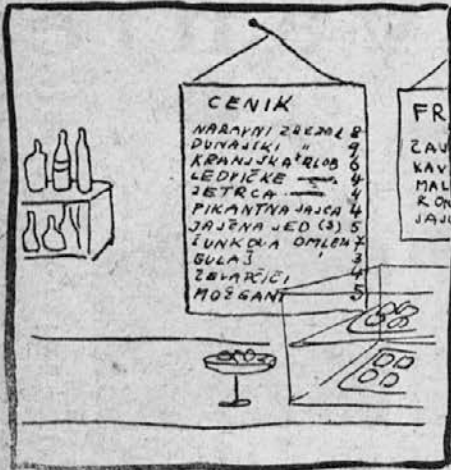 CENIK
NARAVNI ZREZEK 8
DUNAJSKI " 9
KRANJSKA + KLOB 6
LEDVIČKE 4
JETRCA 4
PIKANTNA JAJCA 4
JAJČNA JED (3) 5
ŠUNKOVA OMLETA 7
GULAŠ 3
ČEVAPČIČI 4
MOŽGANI 5
FR
ZAJ
KAV
MAL
RON
JAJC